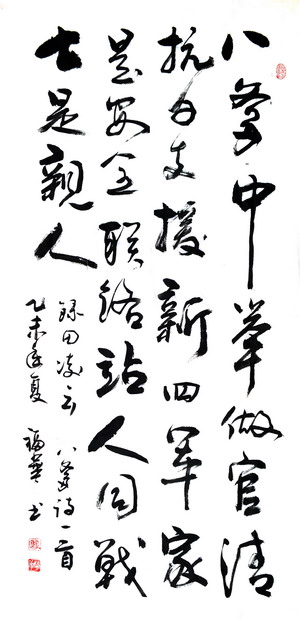 八爹中举做官清
抗日支援新四军家
是安全联络站人同战
士是親人
錄田凌云 八爹诗一首
乙未年夏 福華书